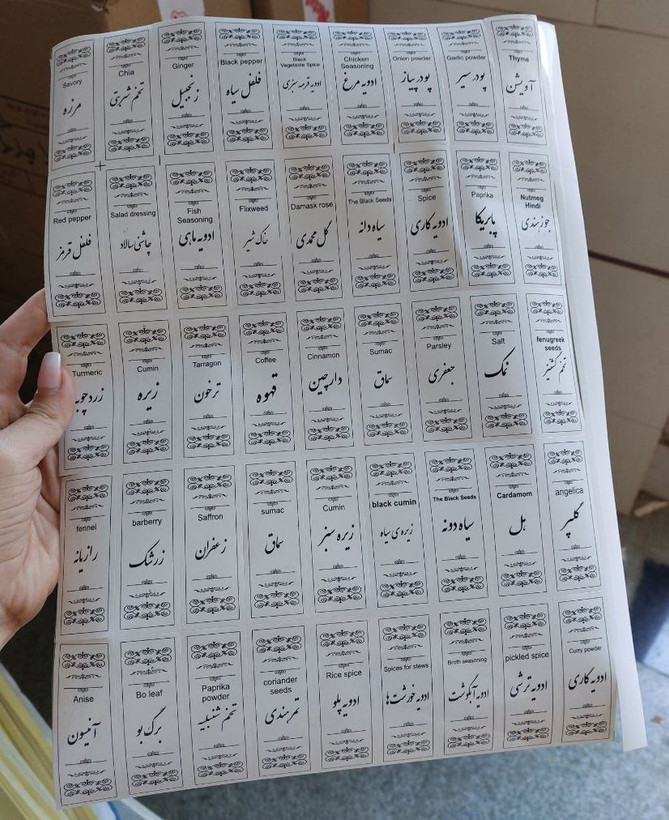 Savory
مرزه
Chia
تخم شربتی
Ginger
زنجبیل
Black pepper
فلفل سیاه
Black
Vegetable Spice
ادویه قرمه سبزی
Chicken
Seasoning
ادویه مرغ
Onion powder
پودر پیاز
Garlic powder
پودر سیر
Thyme
آویشن
Red pepper
فلفل قرمز
Salad dressing
چاشنی سالاد
Fish
Seasoning
ادویه ماهی
Flixweed
خاک شیر
Damask rose
گل محمدی
The Black Seeds
سیاه دانه
Spice
ادویه کاری
Paprika
پاپریکا
Nutmeg
Hindi
جوز هندی
Turmeric
زردچوبه
Cumin
زیره
Tarragon
ترخون
Coffee
قهوه
Cinnamon
دارچین
Sumac
سماق
Parsley
جعفری
Salt
نمک
fenugreek
seeds
تخم گشنیز
fennel
رازیانه
barberry
زرشک
Saffron
زعفران
sumac
سماق
Cumin
زیره سبز
black cumin
زیره ی سیاه
The Black Seeds
سیاه دونه
Cardamom
هل
angelica
گلپر
Anise
آنیسون
Bo leaf
برگ بو
Paprika
powder
تخم شنبلیله
coriander
seeds
تمر هندی
Rice spice
ادویه پلو
Spices for stews
ادویه خورشت ها
Broth seasoning
ادویه آبگوشت
pickled spice
ادویه ترشی
Curry powder
ادویه کاری